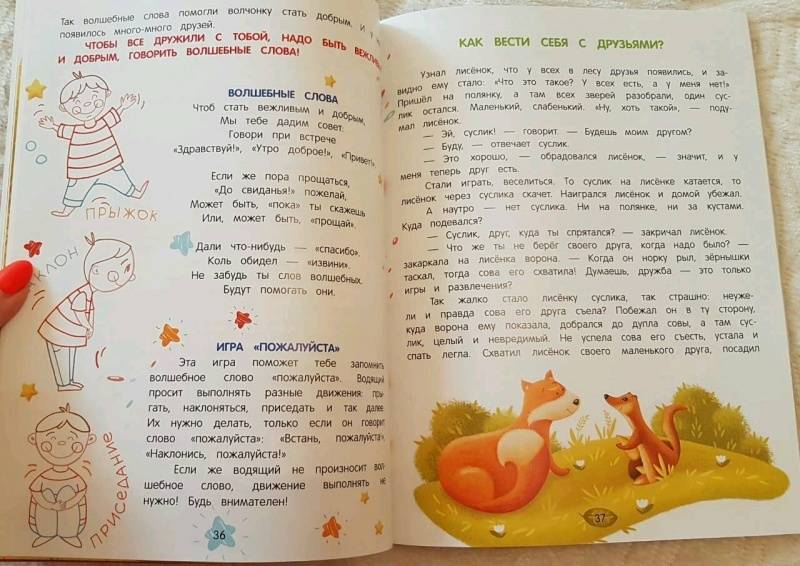 Так волшебные слова помогли волчонку стать добрым, и у
появилось много-много друзей.
ЧТОБЫ ВСЕ ДРУЖИЛИ С ТОБОЙ, НАДО БЫТЬ ВЕЖЛИВ
И ДОБРЫМ, ГОВОРИТЬ ВОЛШЕБНЫЕ СЛОВА!
ВОЛШЕБНЫЕ СЛОВА
Чтоб стать вежливым и добрым,
Мы тебе дадим совет.
Говори при встрече
«Здравствуй!», «Утро доброе!», «Привет!».
Если же пора прощаться,
«До свиданья!» пожелай,
Может быть, «пока» ты скажешь
Или, может быть, «прощай».
Дали что-нибудь — «спасибо».
Коль обидел — «извини».
Не забудь ты слов волшебных.
Будут помогать они.
ПРЫЖОК
КЛОН
ПРИСЕДАНИЕ
ИГРА «ПОЖАЛУЙСТА»
Эта игра поможет тебе запомнить
волшебное слово «пожалуйста». Водящий
просит выполнять разные движения: пры-
гать, наклоняться, приседать и так далее.
Их нужно делать, только если он говорит
слово «пожалуйста»: «Встань, пожалуйста»,
«Наклонись, пожалуйста!»
Если же водящий не произносит вол-
шебное слово, движение выполнять не
нужно! Будь внимателен!
36
КАК ВЕСТИ СЕБЯ С ДРУЗЬЯМИ?
Узнал лисёнок, что у всех в лесу друзья появились, и за-
видно ему стало: «Что это такое? У всех есть, а у меня нет!»
Пришёл на полянку, а там всех зверей разобрали, один сус-
лик остался. Маленький, слабенький. «Ну, хоть такой», — поду-
мал лисёнок.
— Эй, суслик! — говорит. — Будешь моим другом?
— Буду, — отвечает суслик.
— Это хорошо, — обрадовался лисёнок, — значит, и у
меня теперь друг есть.
Стали играть, веселиться. То суслик на лисёнке катается, то
лисёнок через суслика скачет. Наигрался лисёнок и домой убежал.
А наутро — нет суслика. Ни на полянке, ни за кустами.
Куда подевался?
— Суслик, друг, куда ты спрятался? — закричал лисёнок.
— Что же ты не берёг своего друга, когда надо было? —
закаркала на лисёнка ворона. — Когда он норку рыл, зёрнышки
таскал, тогда сова его схватила! Думаешь, дружба — это только
игры и развлечения?
Так жалко стало лисёнку суслика, так страшно: неуже-
ли и правда сова его друга съела? Побежал он в ту сторону,
куда ворона ему показала, добрался до дупла совы, а там сус-
лик, целый и невредимый. Не успела сова его съесть, устала и
спать легла. Схватил лисёнок своего маленького друга, посадил
37